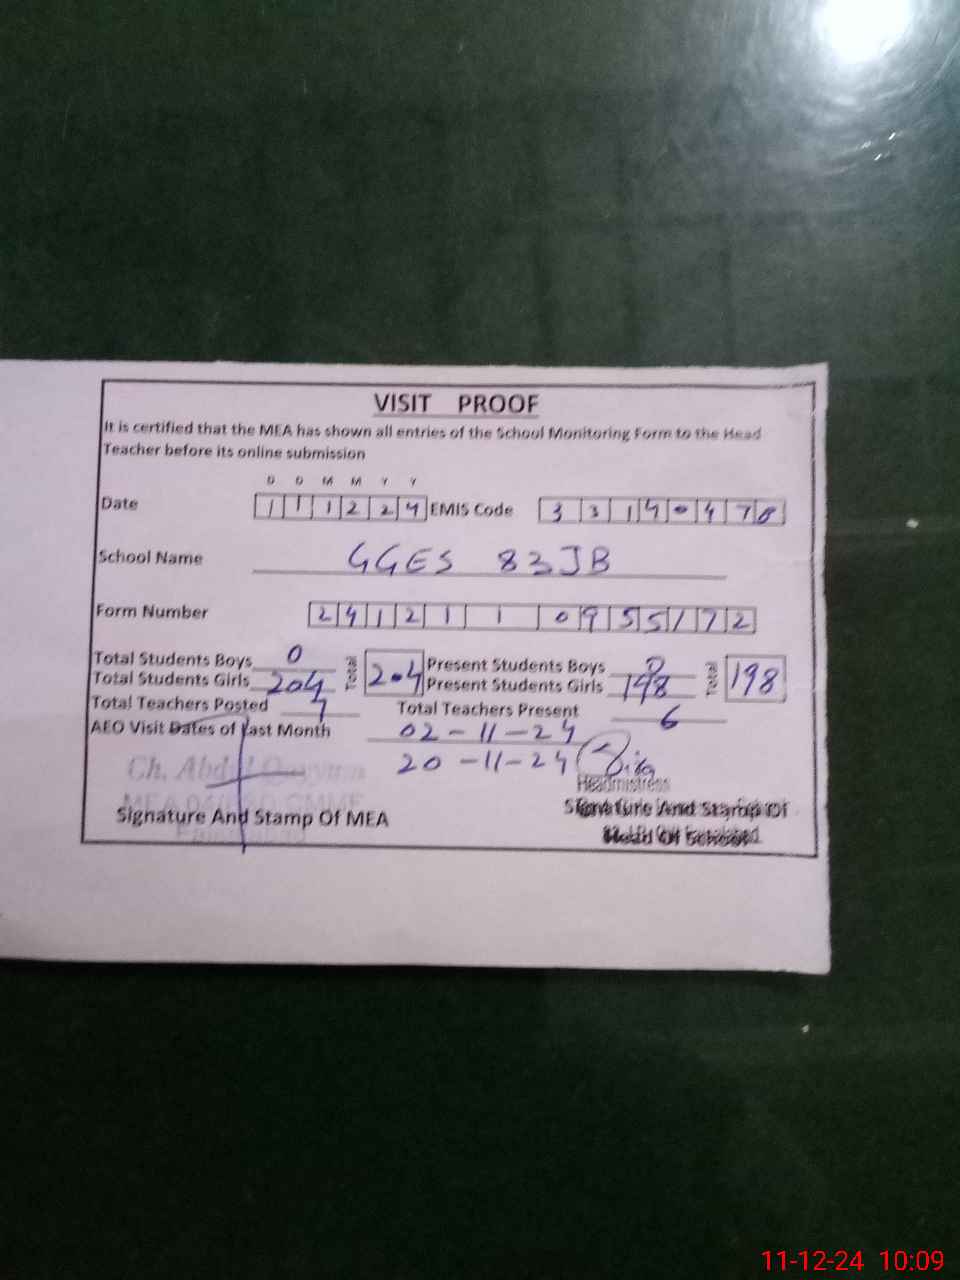 VISIT PROOF
It is certified that the MEA has shown all entries of the School Monitoring Form to the Head
Teacher before its online submission
D D M M Y Y
Date 1 1 1 2 2 4 EMIS Code 3 3 1 4 0 4 7 8
School Name GGES 83JB
Form Number 2 4 1 2 1 1 0 9 5 5 1 7 2
Total Students Boys 0 Total 204 Present Students Boys 0 Total 198
Total Students Girls 204 Present Students Girls 198
Total Teachers Posted 7 Total Teachers Present 6
AEO Visit Dates of Last Month 02-11-24
20-11-24
Ch. Abdul Qayyum
Headmistress
Signature And Stamp Of MEA Signature And Stamp Of
Head Of School
11-12-24 10:09